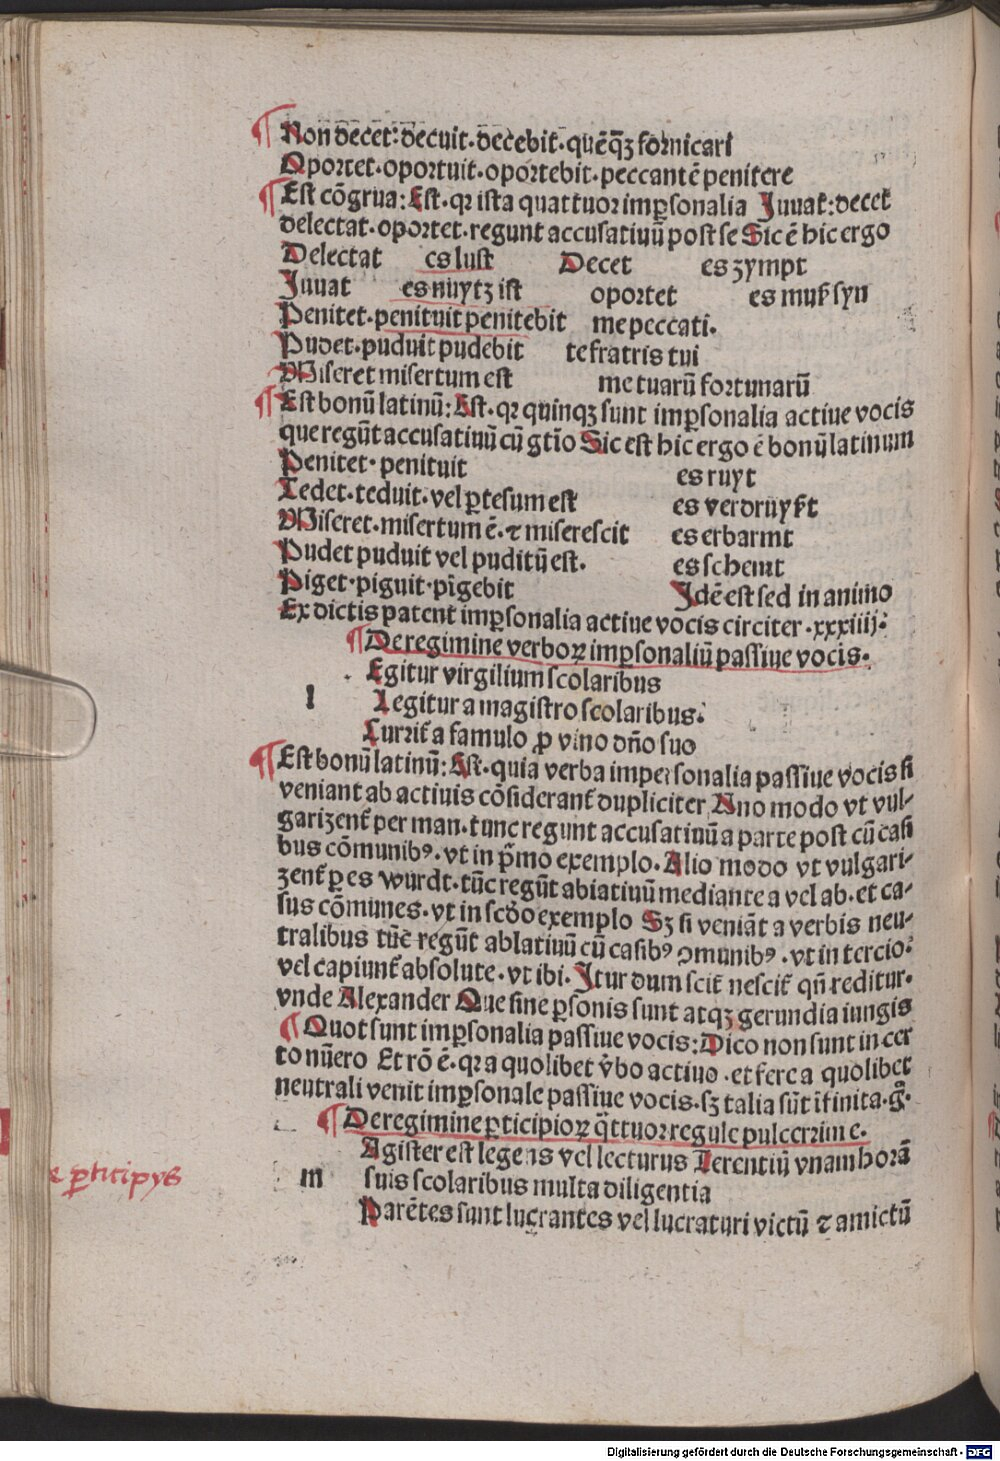 ¶ Non decet: decuit. decebit. quēqꝫ fornicari
Oportet. oportuit. oportebit. peccantē penitere
¶ Est cōgrua: Est. qꝛ ista quattuor imꝑsonalia Iuuat: decet
delectat. oportet. regunt accusatiuū post se Sic ē hic ergo
Delectat es lust Decet es zympt
Iuuat es nuytz ist oportet es muß syn
Penitet. penituit penitebit me peccati.
Pudet. puduit pudebit te fratris tui
Miseret misertum est me tuarū fortunarū
¶ Est bonū latinū: Est. qꝛ quinqꝫ sunt imꝑsonalia actiue vocis
que regūt accusatiuū cū gtīo Sic est hic ergo ē bonū latinum
Penitet. penituit es ruyt
Tedet. teduit. vel ꝑtesum est es verdruyßt
Miseret. misertum ē. ⁊ miserescit es erbarmt
Pudet puduit vel puditū est. es schemt
Piget. piguit. pigebit Idē est sed in animo
Ex dictis patent imꝑsonalia actiue vocis circiter. xxxiiij.
¶ De regimine verboꝝ imꝑsonaliū passiue vocis.
Egitur virgilium scolaribus
l Legitur a magistro scolaribus.
Currit̄ a famulo ꝓ vino dño suo
¶ Est bonū latinū: Est. quia verba impersonalia passiue vocis si
veniant ab actiuis cōsiderant̄ dupliciter Uno modo vt vul-
garizent̄ per man. tunc regunt accusatiuū a parte post cū casi
bus cōmunibꝰ. vt in pͥmo exemplo. Alio modo vt vulgari-
zent̄ ꝑ es wurdt. tūc regūt ablatiuū mediante a vel ab. et ca-
sus cōmunes. vt in scďo exemplo Sꝫ si veniāt a verbis neu-
tralibus tūc regūt ablatiuū cū casibꝰ ꝯmunibꝰ. vt in tercio.
vel capiunt̄ absolute. vt ibi. Itur dum scit̄ nescit̄ qn̄ reditur.
vnde Alexander Que sine ꝑsonis sunt atqꝫ gerundia iungis
¶ Quot sunt imꝑsonalia passiue vocis: Dico non sunt in cer
to nūero Et rō ē. qꝛ a quolibet v̄bo actiuo. et fere a quolibet
neutrali venit imꝑsonale passiue vocis. sꝫ talia sūt īfinita. gͣ.
¶ De regimine ꝑticipioꝝ qͣttuor regule pulcerrime.
Agister est legens vel lecturus Terentiū vnam horā
m suis scolaribus multa diligentia
Parētes sunt lucrantes vel lucraturi victū ⁊ amictū
e ꝑticipys
Digitalisierung gefördert durch die Deutsche Forschungsgemeinschaft - DFG